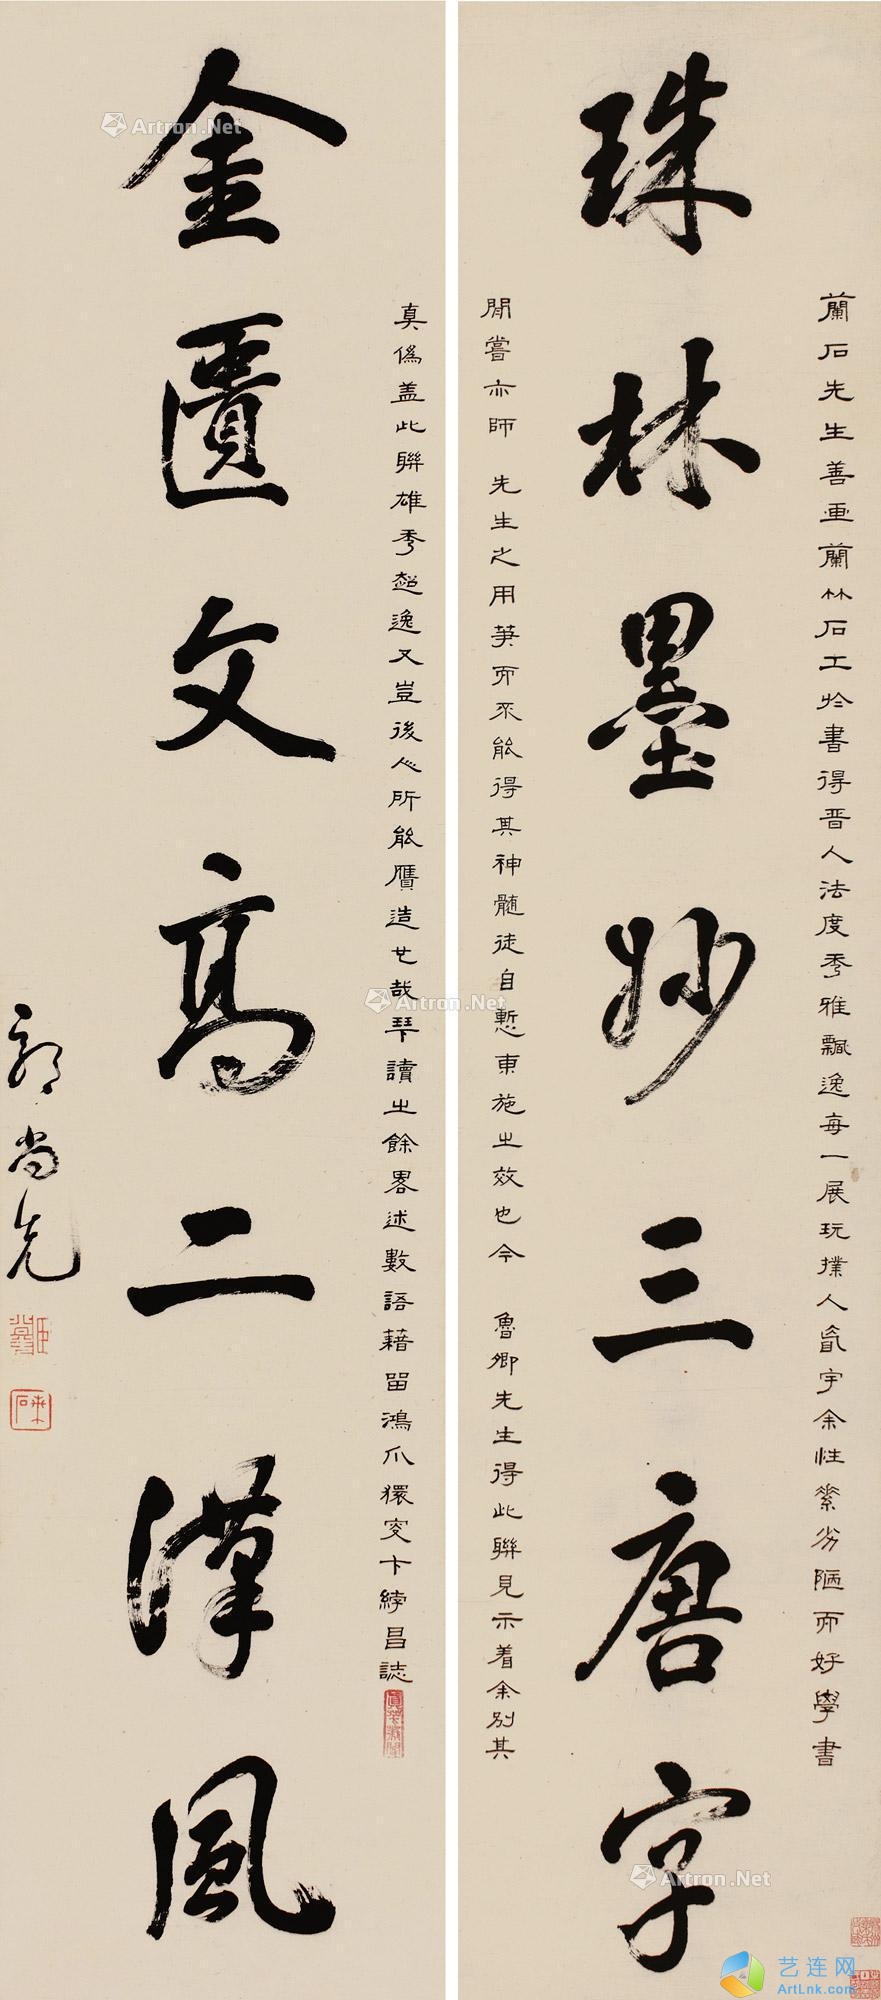 珠林墨妙三唐字
金匱文高二漢風
郭尚先
蘭石先生善画蘭竹石工於書得晋人法度秀雅飄逸每一展玩撲人眉宇余性素劣陋而好學書
間嘗亦師 先生之用筆而不能得其神髓徒自慙東施之效也今 魯卿先生得此聯見示着余別其
真偽盖此聯雄秀超逸又豈後人所能贋造也哉琴讀之餘畧述數語藉留鴻爪
昌誌
Artron.Net
Artron.Net
Artron.Net
艺连网
ArtLnk.com